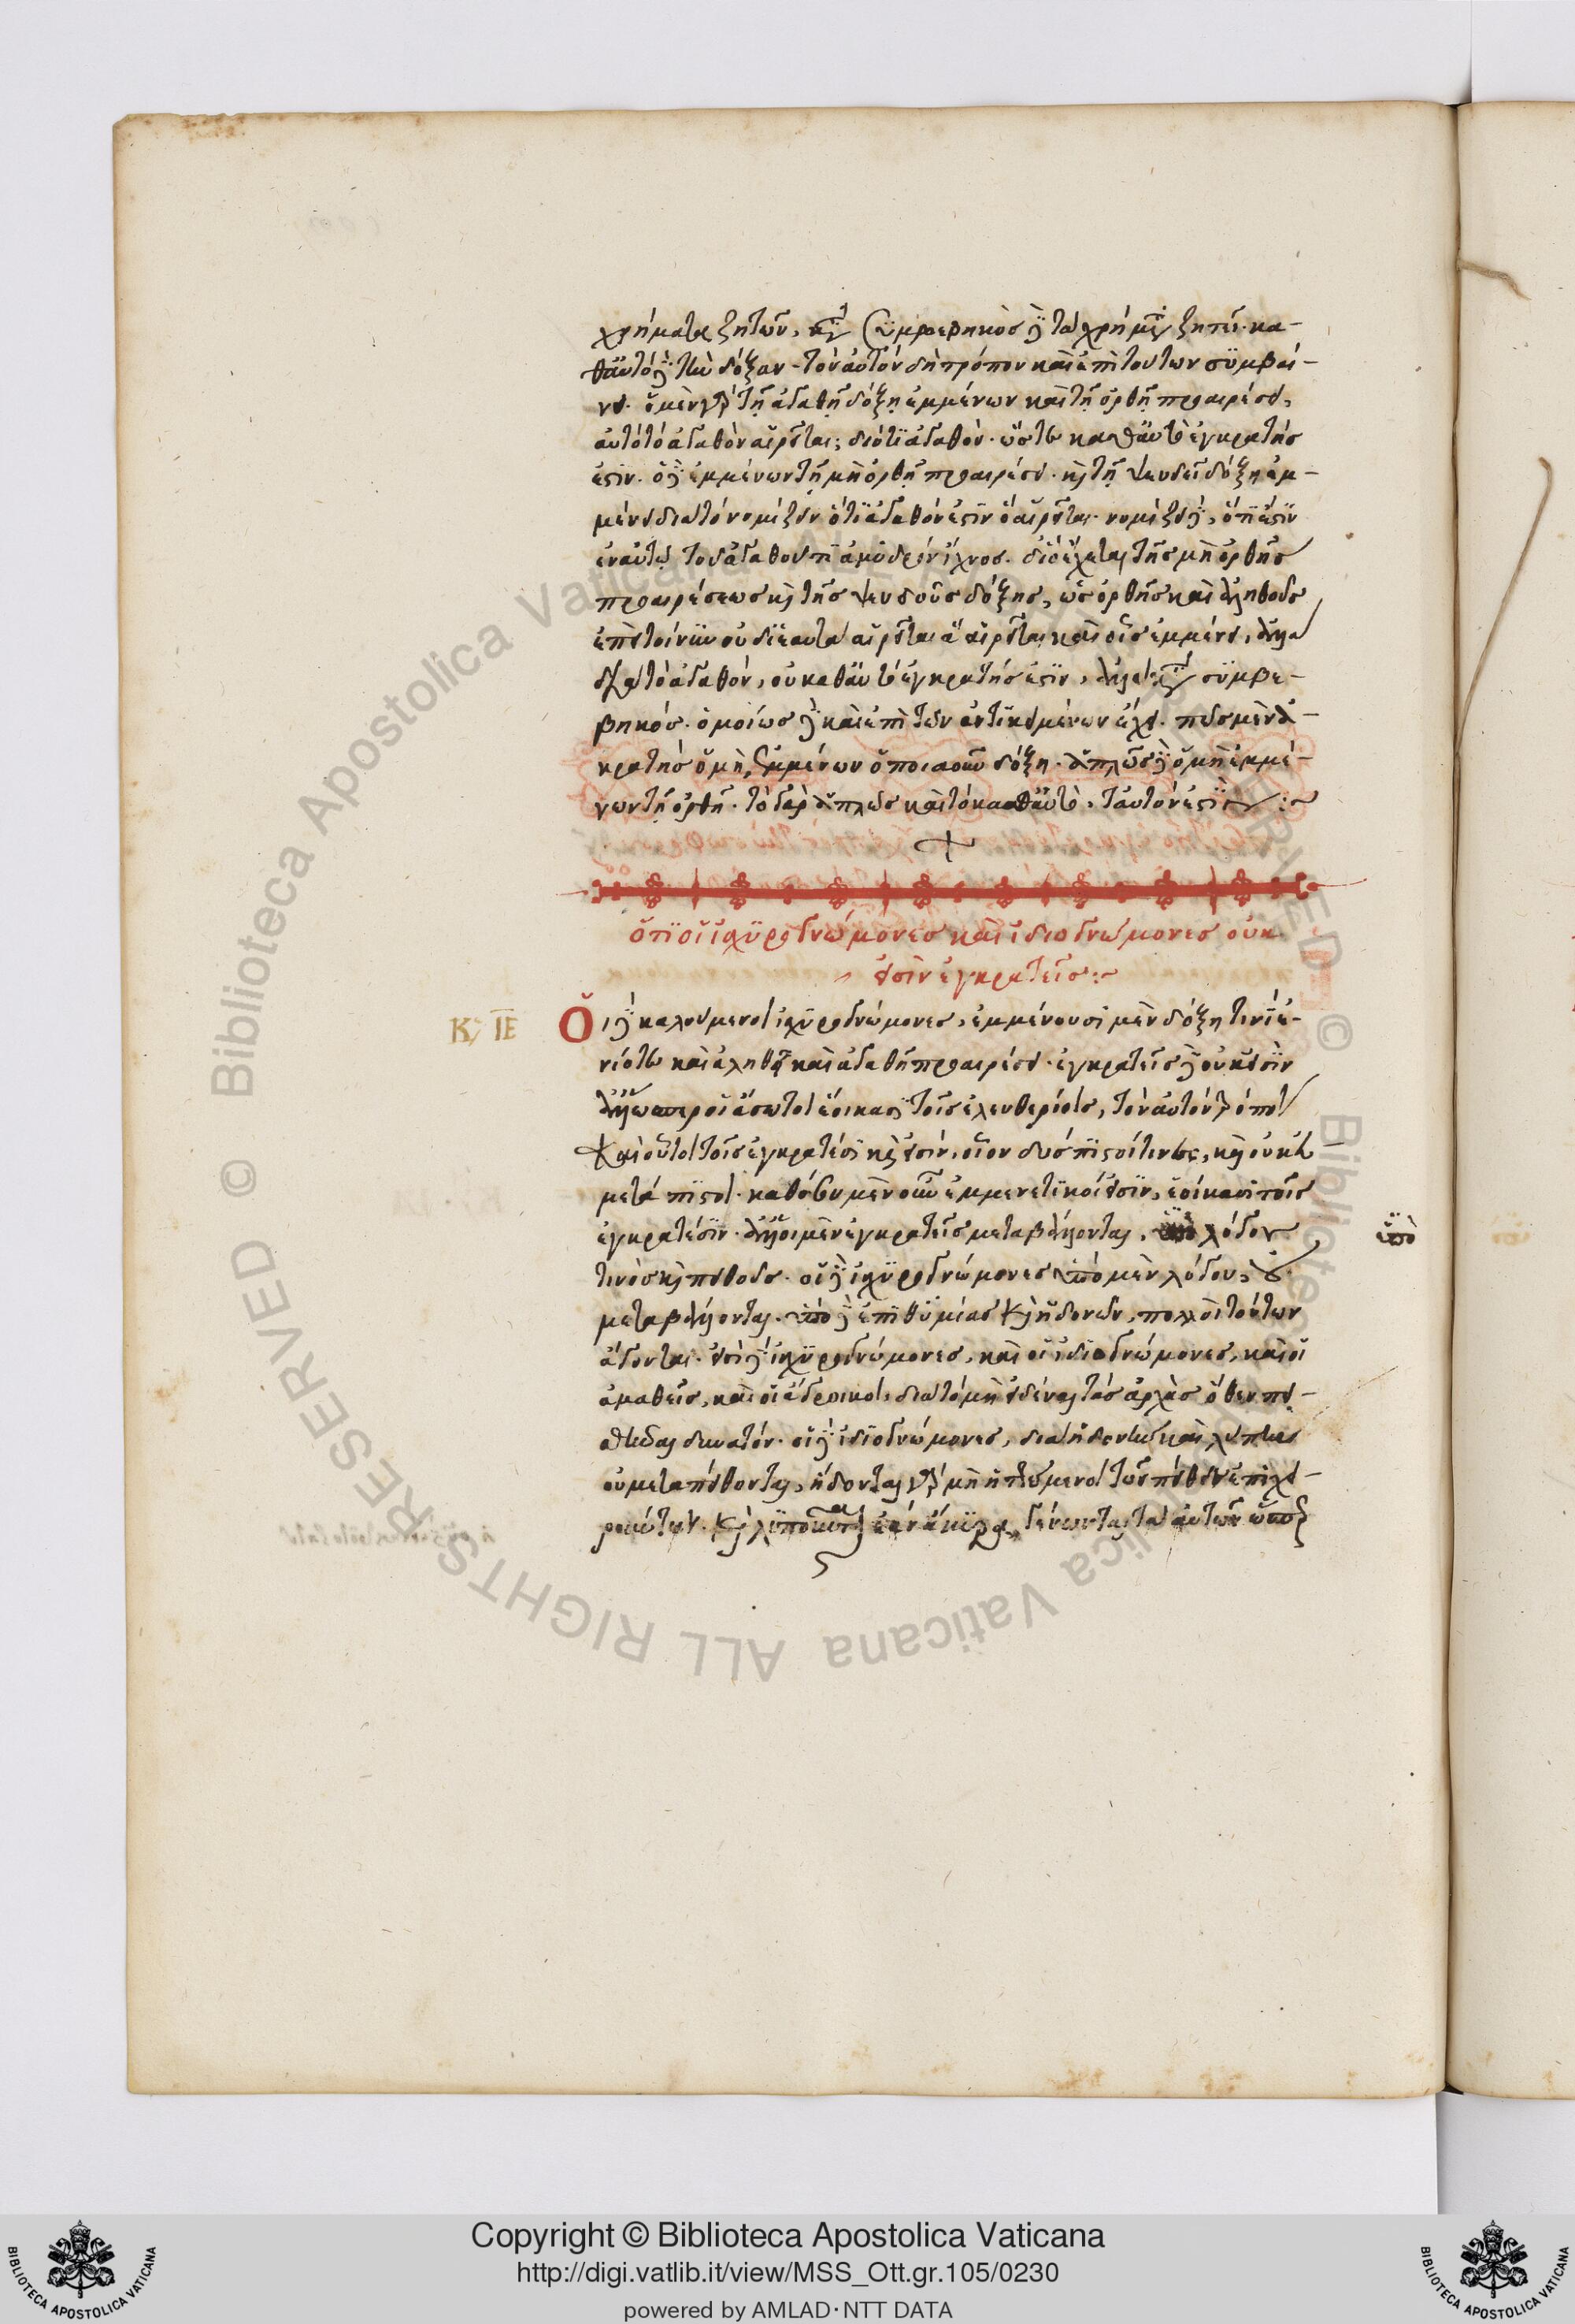 χρήματα ζητῶν, κατὰ συμβεβηκὸς δὲ τὰ χρήματα ζητεῖ. κα-
θαὑτὸ δὲ τὴν δόξαν. τὸν αὐτὸν δὴ τρόπον καὶ ἐπὶ τούτων συμβαί-
νει. ὁ μὲν γὰρ τῇ ἀγαθῇ δόξῃ ἐμμένων καὶ τῇ ὀρθῇ προαιρέσει,
αὐτὸ τὸ ἀγαθὸν αἱρεῖται, διότι ἀγαθόν. οὗτω καθαὑτὸ ἐγκρατής
ἐστιν. ὁ δὲ ἐμμένων τῇ μὴ ὀρθῇ προαιρέσει. καὶ τῇ ψευδεῖ δόξῃ ἐμ-
μένει διὰ τὸ νομίζειν ὅτι ἀγαθόν ἐστιν ὃ αἱρεῖται. νομίζει δὲ, ὅτι ἐστὶν
ἐν αὐτῷ τοῦ ἀγαθοῦ τι ἀμυδρὸν ἴχνος. διὸ ἔχεται τῆς μὴ ὀρθῆς
προαιρέσεως καὶ τῆς ψευδοῦς δόξης, ὡς ὀρθῆς καὶ ἀληθοῦς
ἐπεὶ τοίνυν οὐ δι' ἑαυτὰ αἱρεῖται ἃ αἱρεῖται καὶ οἷς ἐμμένει, ἀλλὰ
διὰ τὸ ἀγαθόν, οὐ καθαὑτό ἐγκρατής ἐστιν, ἀλλὰ κατὰ συμβε-
βηκός. ὁμοίως δὲ καὶ ἐπὶ τῶν ἀντικειμένων ἔχει. πῶς μὲν ἀ-
κρατὴς ὁ μὴ ἐμμένων ὁποιαοῦν δόξῃ. ἁπλῶς δὲ ὁ μὴ ἐμμέ-
νων τῇ ὀρθῇ. τὸ γὰρ ἁπλῶς καὶ τὸ καθαὑτὸ, ταυτόν ἐστιν :~
ὅτι οἱ ἰσχυρογνώμονες καὶ ἰδιογνώμονες οὐκ
εἰσὶν ἐγκρατεῖς :~
Κ; ΙΕ
Οἱ δὲ καλούμενοι ἰσχυρογνώμονες, ἐμμένουσι μὲν δόξῃ τινί ἐ-
νίοτε καὶ ἀληθεῖ καὶ ἀγαθῇ προαιρέσει. ἐγκρατεῖς δὲ οὐκ εἰσὶν
ἀλλ' ὥσπερ οἱ ἄσωτοι ἐοίκασι τοῖς ἐλευθερίοις, τὸν αὐτὸν τρόπον
καὶ οὗτοι τοῖς ἐγκρατέσι καὶ εἰσίν. οἷον δύσπιστοί τινες, καὶ οὐκ εὐ
μετάπιστοι. καθόσον μὲν οὖν ἐμμενετικοί εἰσιν, ἐοίκασι τοῖς
ἐγκρατέσιν. ἀλλ' οἱ μὲν ἐγκρατεῖς μεταβάλλονται, ὑπὸ λόγου
ὑπὸ
τινὸς καὶ πείθους. οἱ δὲ ἰσχυρογνώμονες ὑπὸ μὲν λόγου, οὐ
μεταβάλλονται. ὑπὸ δὲ ἐπιθυμίας καὶ ἡδονῶν, πολλοὶ τούτων
ἄγονται. εἰσὶ δὲ ἰσχυρογνώμονες, καὶ οἱ ἰδιογνώμονες, καὶ οἱ
ἀμαθεῖς, καὶ οἱ ἄγροικοι, διὰ τὸ μὴ εἰδέναι τὰς ἀρχὰς ὅθεν πει-
σθῆναι δυνατόν. οἱ δὲ ἰδιογνώμονες, διὰ ἡδονὴν καὶ λύπην
οὐ μεταπείθονται, ἥδονται γὰρ μὴ ἡττώμενοι τῶν πείθειν ἐπιχει-
ρούντων. καὶ λυποῦνται ἐὰν ἄκυρα γένωνται τὰ αὐτῶν ὥσπερ